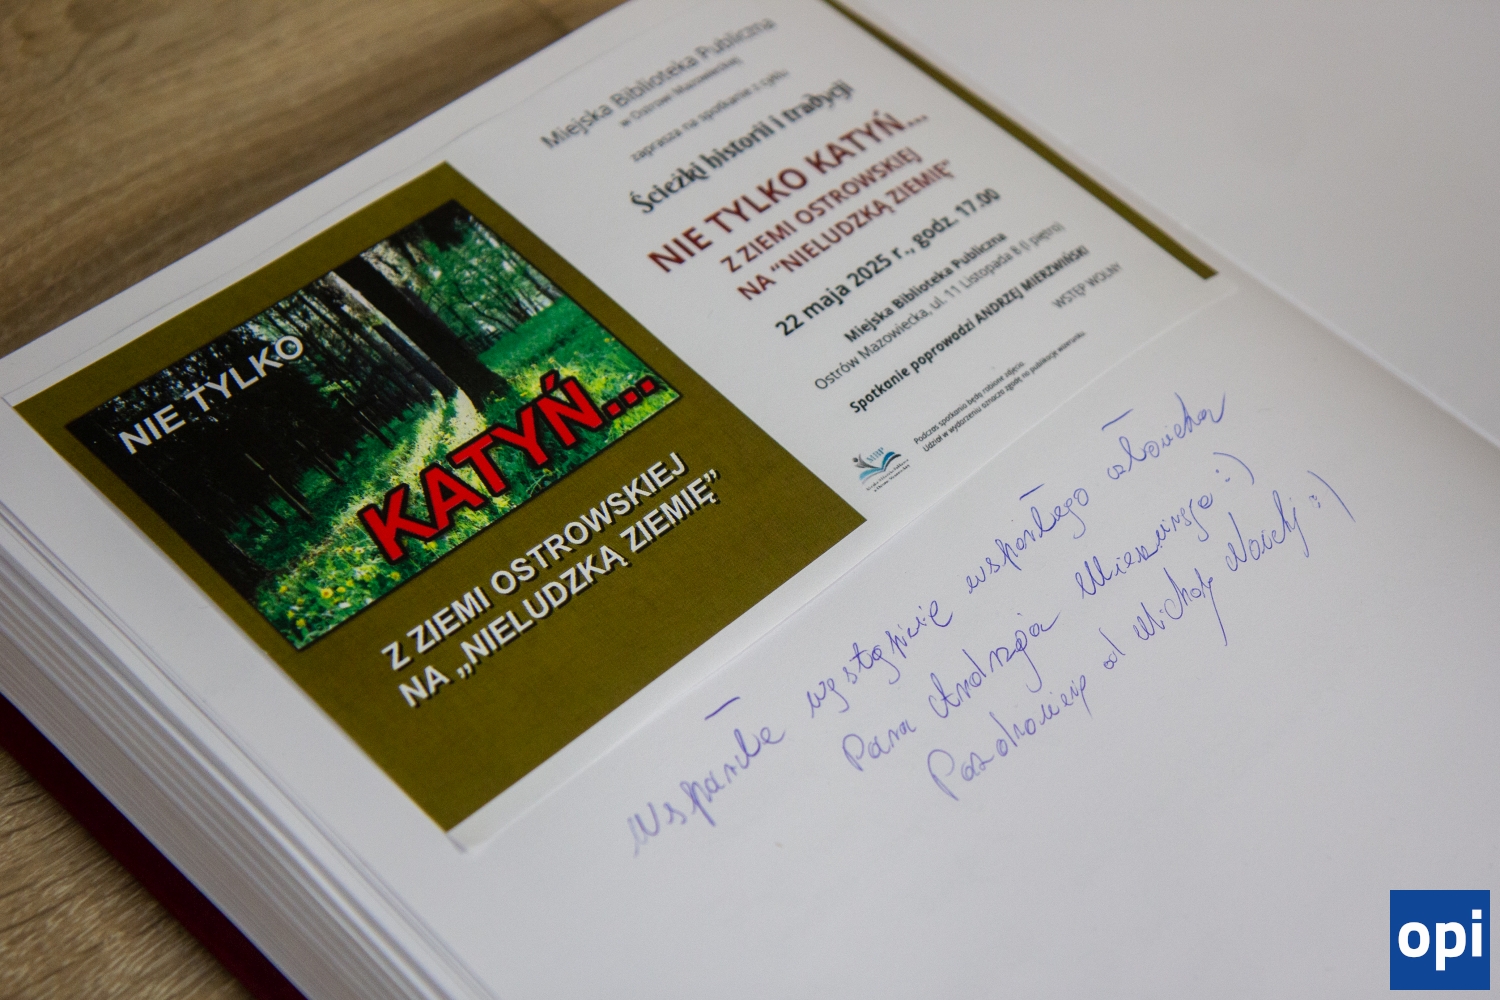 NIE TYLKO
KATYŃ...
Z ZIEMI OSTROWSKIEJ
NA „NIELUDZKĄ ZIEMIĘ”
Miejska Biblioteka Publiczna
w Ostrowi Mazowieckiej
zaprasza na spotkanie z cyklu
Ścieżki historii i tradycji
NIE TYLKO KATYŃ...
Z ZIEMI OSTROWSKIEJ
NA "NIELUDZKĄ ZIEMIĘ"
22 maja 2025 r., godz. 17.00
Miejska Biblioteka Publiczna
Ostrów Mazowiecka, ul. 11 Listopada 8 (I piętro)
Spotkanie poprowadzi ANDRZEJ MIERZWIŃSKI
WSTĘP WOLNY
Podczas spotkania będą robione zdjęcia.
Udział w wydarzeniu oznacza zgodę na publikację wizerunku.
MBP
Wspaniałe wystąpienie wspaniałego człowieka
Pana Andrzeja :)
Pozdrowienia od :)
opi